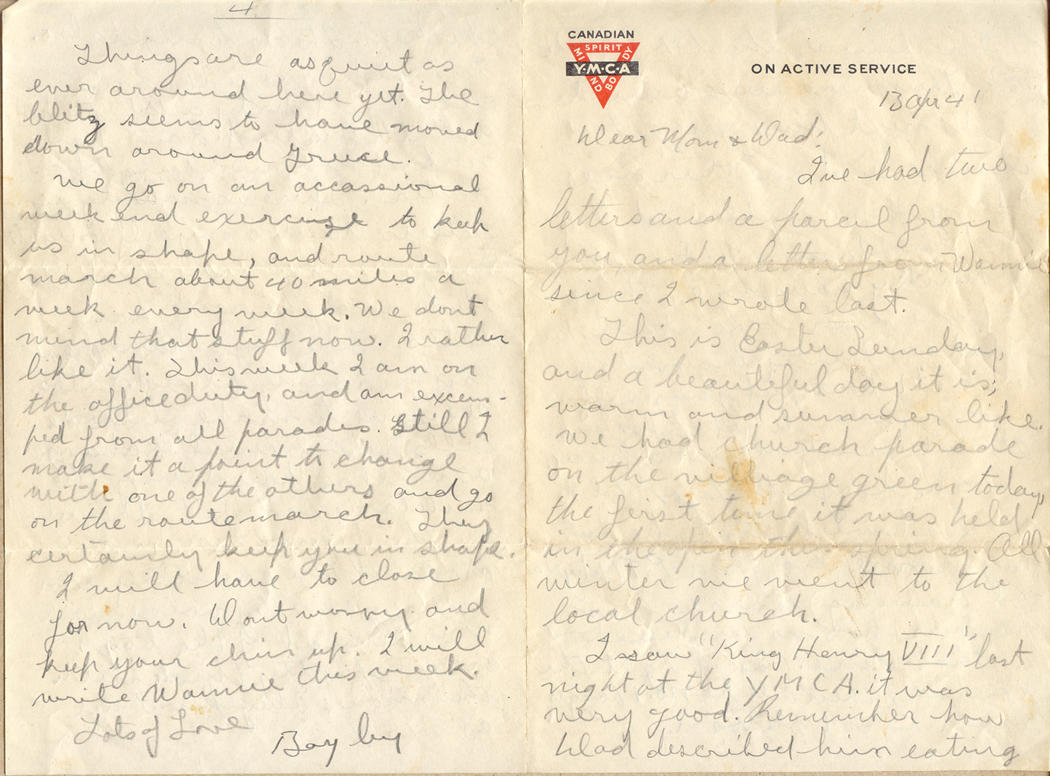 CANADIAN
SPIRIT
MIND
BODY
Y·M·C·A
ON ACTIVE SERVICE
13 Apr 41
Dear Mom & Dad:
I've had two
letters and a parcel from
you and a letter from Dannie
since I wrote last.
This is Easter Sunday,
and a beautiful day it is;
warm and summer like.
We had church parade
on the villiage green today,
the first time it was held
in the open this spring. All
winter we went to the
local church.
I saw "King Henry VIII" last
night at the YMCA. it was
very good. Remember how
Dad described him eating
4
Things are as quiet as
ever around here yet. The
blitz seems to have moved
down around Greece.
We go on an occassional
week end exercize to keep
us in shape, and route
march about 40 miles a
week every week. We dont
mind that stuff now. I rather
like it. This week I am on
the office duty, and am excem-
ped from all parades. Still I
make it a point to change
with one of the others and go
on the route march. They
certainly keep you in shape.
I will have to close
for now. Dont worry and
keep your chin up. I will
write Dannie this week.
Lots of Love